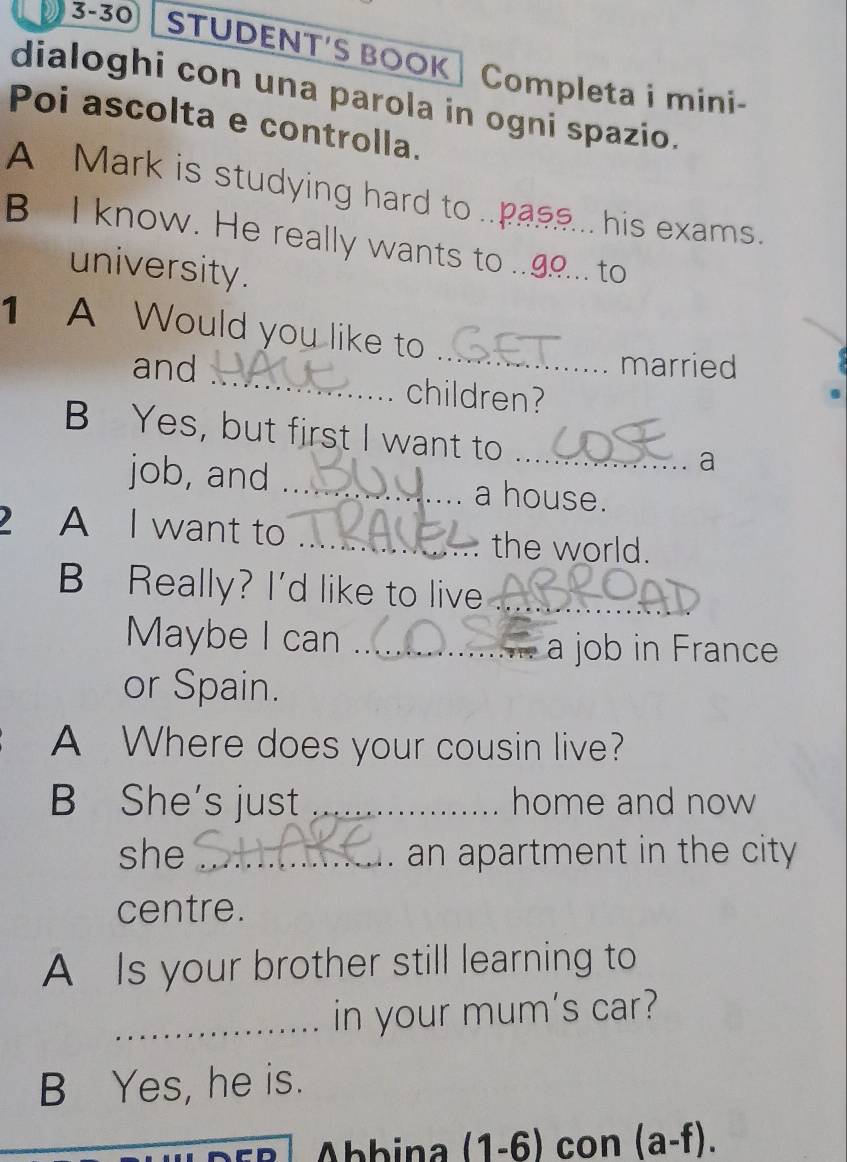 3-30 STUDENT'S BOOK Completa i mini-
dialoghi con una parola in ogni spazio.
Poi ascolta e controlla.
A Mark is studying hard to ..pass... his exams.
B I know. He really wants to ..go... to
university.
1 A Would you like to GET married
and HAVE children?
B Yes, but first I want to COSE a
job, and BUY a house.
2 A I want to TRAVEL the world.
B Really? I'd like to live ABROAD
Maybe I can COSE a job in France
or Spain.
A Where does your cousin live?
B She's just .................. home and now
she SHARE an apartment in the city
centre.
A Is your brother still learning to
.................. in your mum's car?
B Yes, he is.
Abbina (1-6) con (a-f).